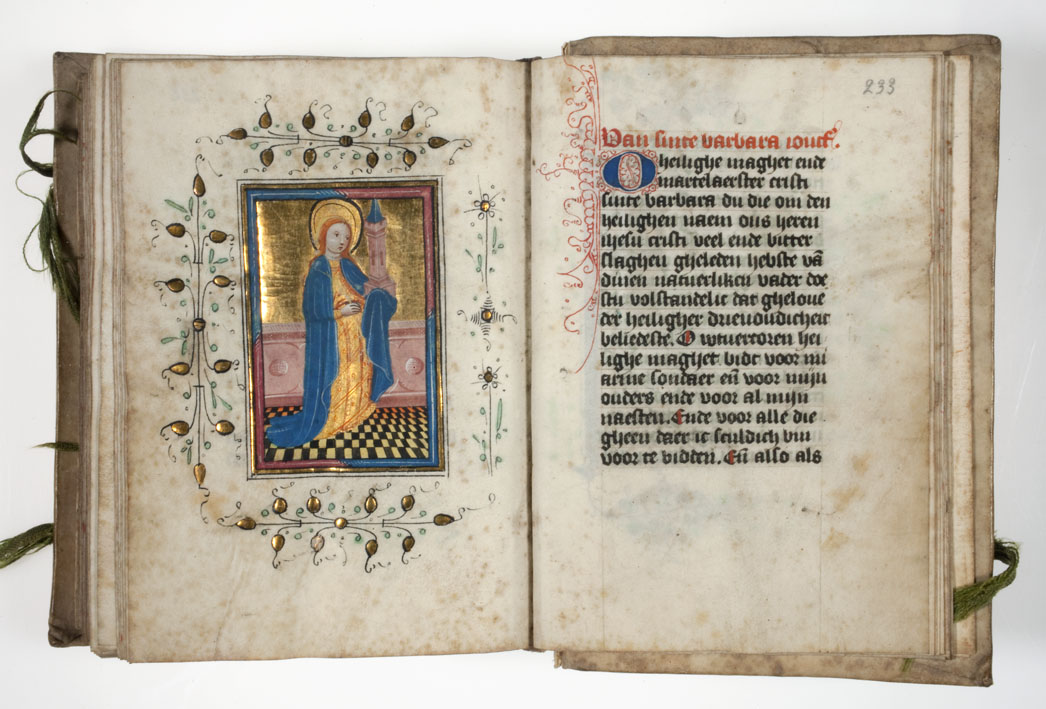 233
Van sinte barbara ioucf.
O heilighe maghet ende
martelaerster cristi
sinte barbara du die om den
heilighen naem ons heren
ihesu cristi veel ende bitter
slaghen gheleden hebste vā
dinen natuerliken vader doe
stu volstandelic dat gheloue
der heiligher drieuoudicheit
beliedeste. O wtuercoren hei
lighe maghet bidt voor mi
arme sondaer en̄ voor mijn
ouders ende voor al mijn
naesten. Ende voor alle die
gheen daer ic sculdich bin
voor te bidden. En̄ also als